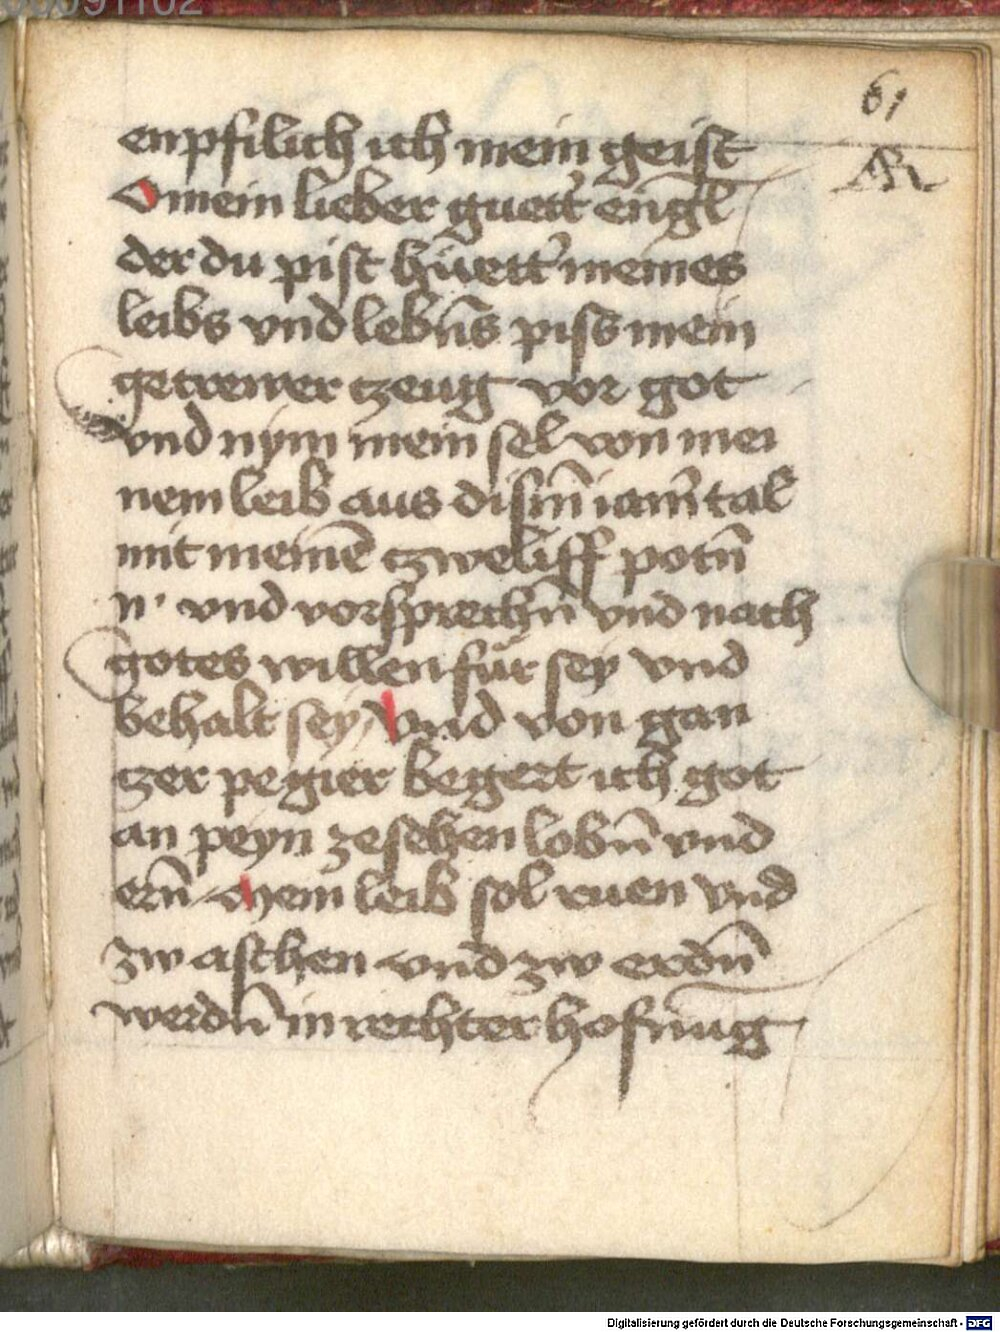 61
enpfilich ich mein geist
O mein lieber guett' engl
der du pist hüett' meines
leibs vnd lebn̄s piss mein
getrewer czeug vor got
vnd nym mein sel von mei
nem leib aus dism̄ iam̄tal
mit meinē czweliff potn̄
n' vnd vorsprechn̄ vnd nach
gotes willen für sey vnd
behalt sey / vnd von gan
czer pegier begert ich got
an peyn zesehen lobn̄ vnd
ern̄ Mein leib sol ruen vnd
zw aschen vnd zw erdn̄
werdn̄ in rechter hofnug
Digitalisierung gefördert durch die Deutsche Forschungsgemeinschaft - DFG